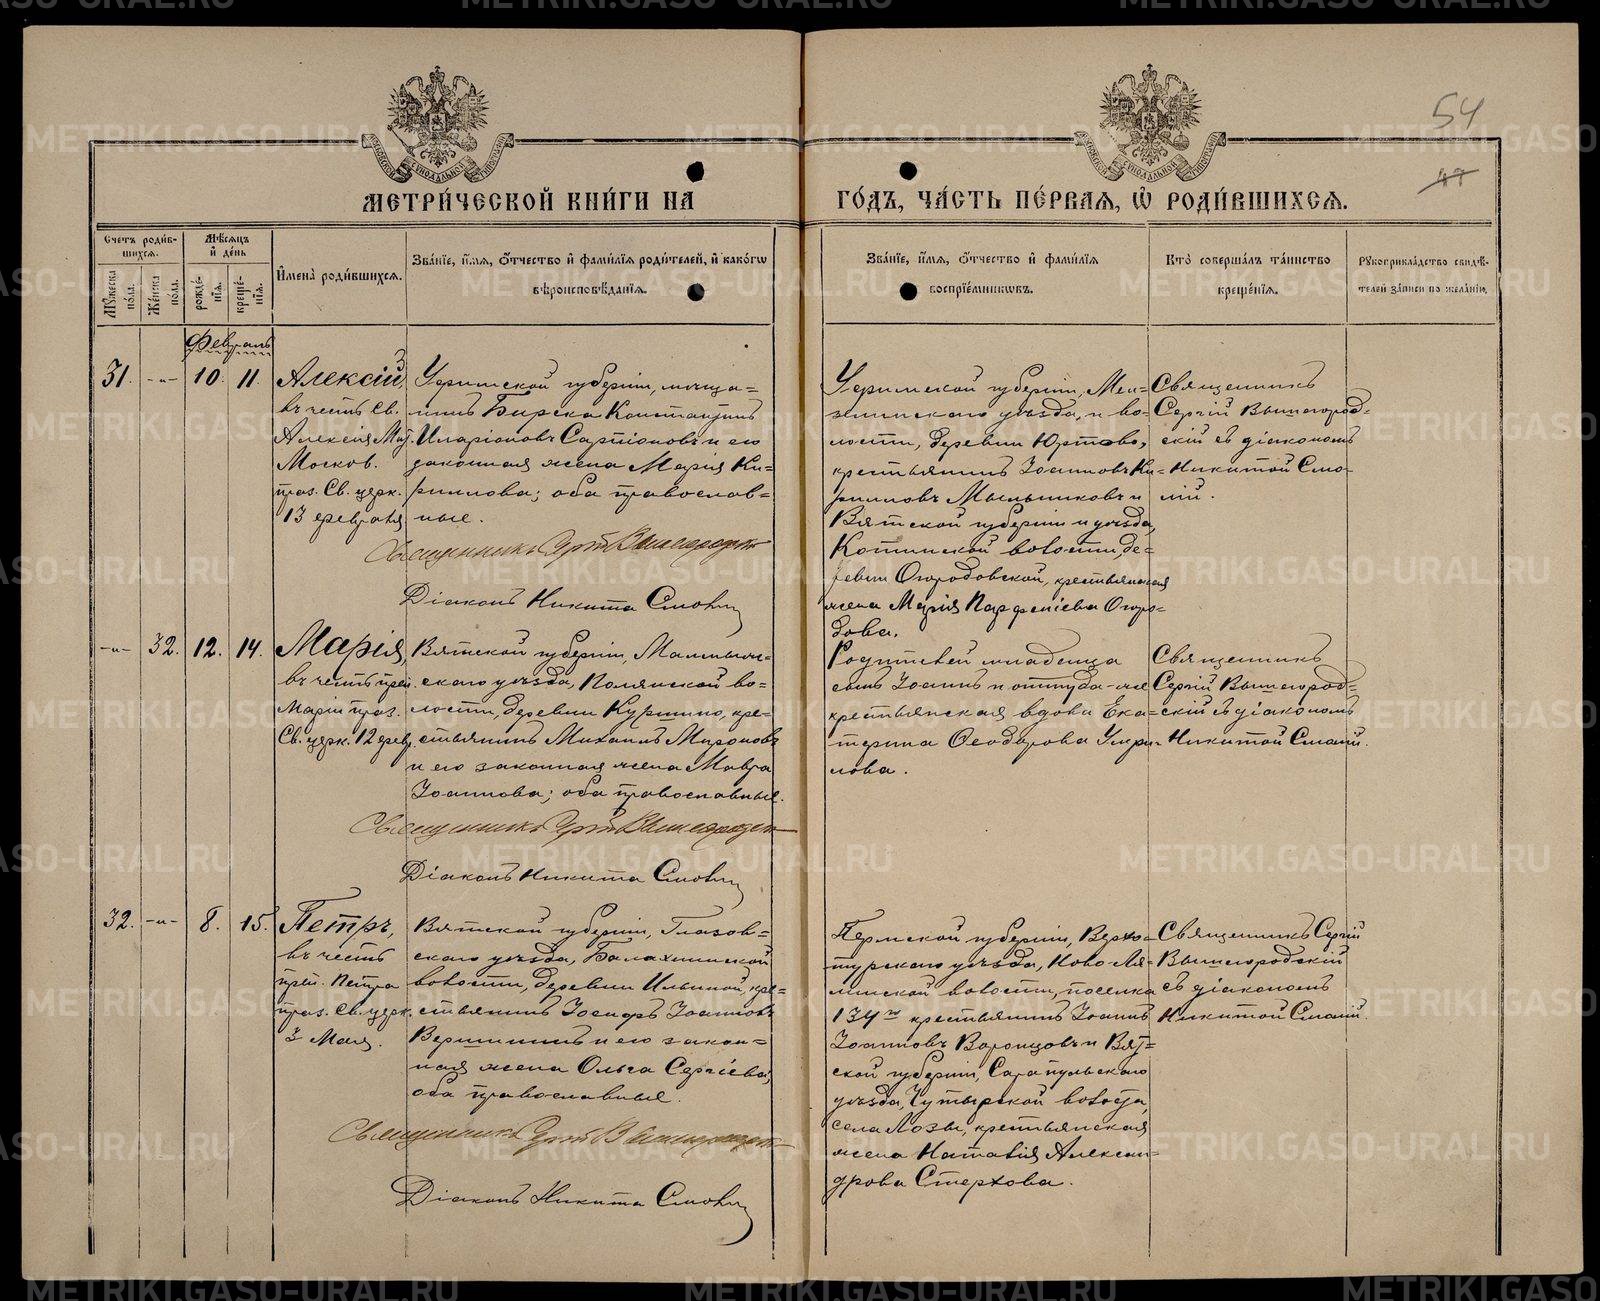 54
47
МЕТРИ́ЧЕСКОЙ КНИ́ГИ НА
ГО́ДЪ, ЧА́СТЬ ПЕ́РВАЯ, Ѡ РОДИ́ВШИХСЯ.
Счетъ роди́вшихся.
Му́жеска по́ла.
Же́нска по́ла.
Мѣсяцъ и де́нь
рожде́нія.
креще́нія.
Имена̀ роди́вшихся.
Зва́ніе, и́мя, о́тчество и фами́лія роди́телей, и како́гѡ
вѣроисповѣ́данія.
Зва́ніе, и́мя, о́тчество и фами́лія
воспріе́мниковъ.
Кто̀ соверша́лъ та́инство
креще́нія.
Рукоприкла́дство свидѣ́-
телей за́писи по жела́нію.
Февраль
31. -„- 10. 11.
Алексій,
въ честь Св.
Алексія Мит.
Москов.
праз. Св. церк.
13 февраля
Уфимской губерніи, мѣща-
нинъ Бирска Константинъ
Иларіоновъ и его
законная жена Марія Ки-
риллова; оба православ-
ные.
Священникъ Сергій Вышегородскій
Діаконъ Никита
Уфимской губерніи, Мен-
зелинскаго уѣзда, и во-
лости, деревни Юртово,
крестьянинъ Іоаннъ Ки-
рилловъ Мыльниковъ и
Вятской губерніи и уѣзда,
волости, де-
ревни Огородовской, крестьянская
жена Марія Парфеніева Огоро-
дова.
Священникъ
Сергій Вышегород-
скій съ діакономъ
Никитой Смо-
лій.
-„- 32. 12. 14.
Марія,
въ честь преп.
Маріи праз.
Св. церк. 12 февр.
Вятской губерніи, Малмыж-
скаго уѣзда, Полянской во-
лости, деревни Куршино, кре-
стьянинъ Михаилъ Мироновъ
и его законная жена Мавра
Іоаннова; оба православные.
Священникъ Сергій Вышегородскій
Діаконъ Никита
Родителей младенца
сынъ Іоаннъ и оттуда-же
крестьянская вдова Ека-
терина Ѳеодорова
Священникъ
Сергій Вышегород-
скій съ діакономъ
Никитой Смолій.
32. -„- 8. 15.
Петръ,
въ честь
преп. Петра
праз. Св. церк.
3 Мая.
Вятской губерніи, Глазов-
скаго уѣзда, Балахнинской
волости, деревни Ильиной, кре-
стьянинъ Іосифъ Іоанновъ
Вершининъ и его закон-
ная жена Ольга Сергіева;
оба православные.
Священникъ Сергій Вышегородскій
Діаконъ Никита
Пермской губерніи, Верхо-
турскаго уѣзда, Ново-Ля-
линской волости, поселка
134го крестьянинъ Іоаннъ
Іоанновъ Воронцовъ и Вят-
ской губерніи, Сарапульскаго
уѣзда, Чутырской волости,
села Лозы, крестьянская
жена Наталія Алексан-
дрова Стерхова.
Священникъ Сергій
Вышегородскій
съ діакономъ
Никитой Смолій.
METRIKI.GASO-URAL.RU